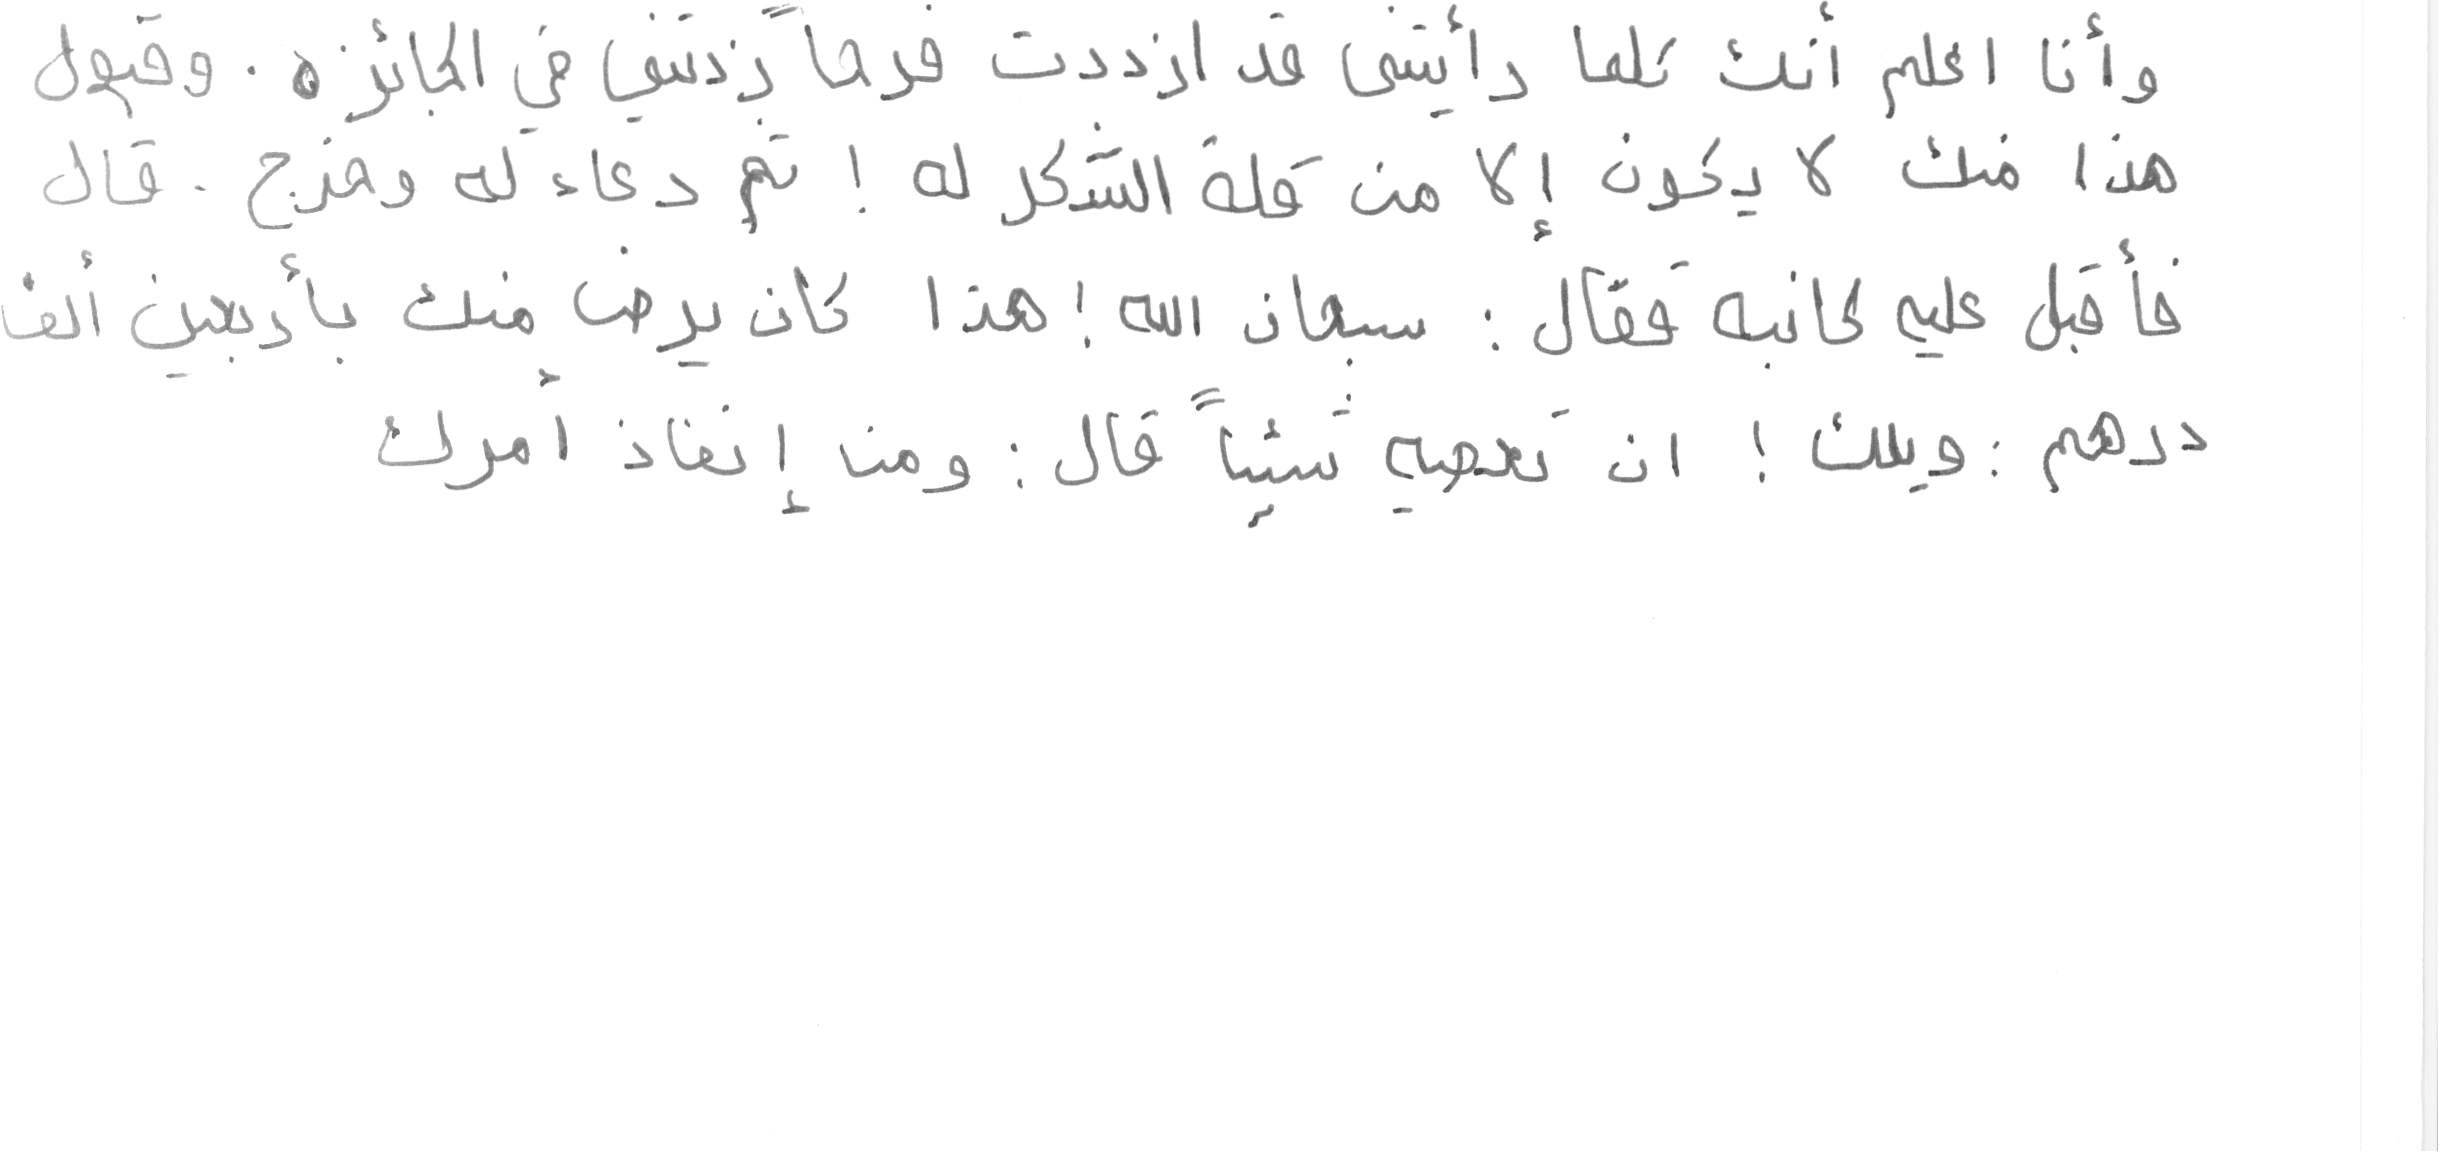 وأنا اعلم أنك كلما رأيتني قد ازددت فرحاً زدتني في الجائزه . وقبول
هذا منك لا يكون إلا من قلة الشكر له ! ثم دعاء له وخرج . قال
فأقبل عليه كاتبه فقال : سبحان الله ! هذا كان يرضا منك بأربعين ألف
درهم : ويلك ! ان تعطيه شيئاً قال : ومن إنفاذ أمرك